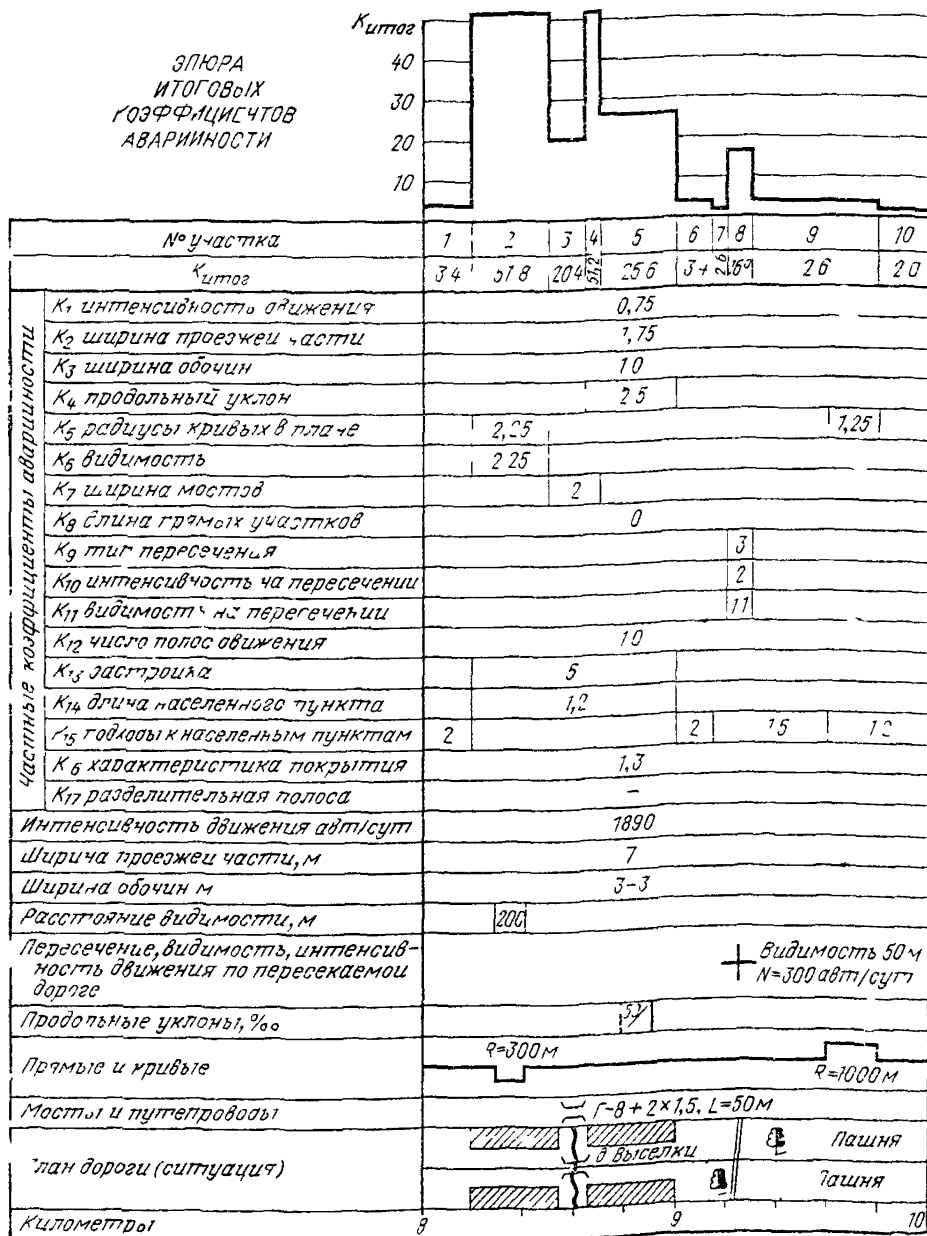 ЭПЮРА
ИТОГОВЫХ
КОЭФФИЦИЕНТОВ
АВАРИЙНОСТИ
Kитог
40
30
20
10
№ участка 1 2 3 4 5 6 7 8 9 10
Kитог 3 4 51 8 20 4 51,2 25 6 3 4 2 6 2 6 2 0
Частные коэффициенты аварийности
K1 интенсивность движения 0,75
K2 ширина проезжей части 1,75
K3 ширина обочин 1 0
K4 продольный уклон 2 5
K5 радиусы кривых в плане 2,25 1,25
K6 видимость 2 25
K7 ширина мостов 2
K8 длина прямых участков 0
K9 тип пересечения 3
K10 интенсивность на пересечении 2
K11 видимость на пересечении 1 1
K12 число полос движения 1 0
K13 застройка 5
K14 длина населенного пункта 1,2
K15 подходы к населенным пунктам 2 2 1 5 1 2
K 6 характеристика покрытия 1,3
K17 разделительная полоса –
Интенсивность движения авт/сут 1890
Ширина проезжей части, м 7
Ширина обочин м 3-3
Расстояние видимости, м 200
Пересечение, видимость, интенсив-
ность движения по пересекаемой
дороге
Видимость 50 м
N=300 авт/сут
Продольные уклоны, ‰
Прямые и кривые R=300 м R=1000 м
Мосты и путепроводы Г-8 + 2×1,5, L=50 м
План дороги (ситуация) д выселки Пашня
Пашня
Километры 8 9 10